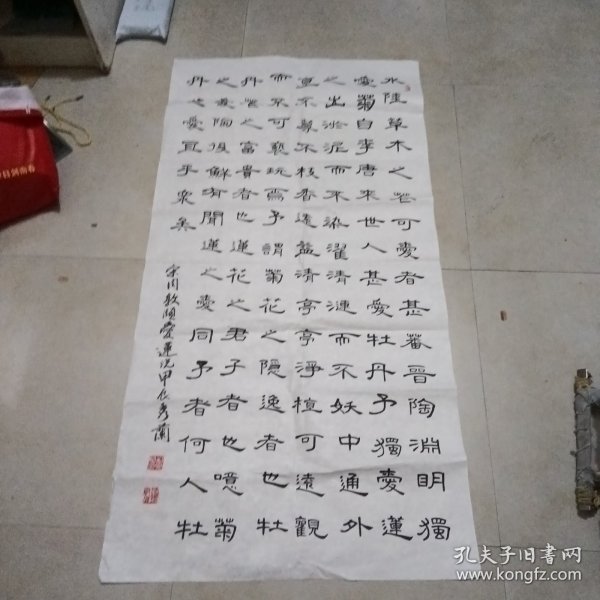 水陸草木之花可愛者甚蕃晉陶淵明獨
愛菊自李唐來世人甚愛牡丹予獨愛蓮
之出淤泥而不染濯清漣而不妖中通外
直不蔓不枝香遠益清亭亭淨植可遠觀
而不可褻玩焉予謂菊花之隱逸者也牡
丹花之富貴者也蓮花之君子者也噫菊
之愛陶後鮮有聞蓮之愛同予者何人牡
丹之愛宜乎衆矣
宋周敦頤愛蓮説甲辰秀蘭
孔夫子旧书网
www.kongfz.com